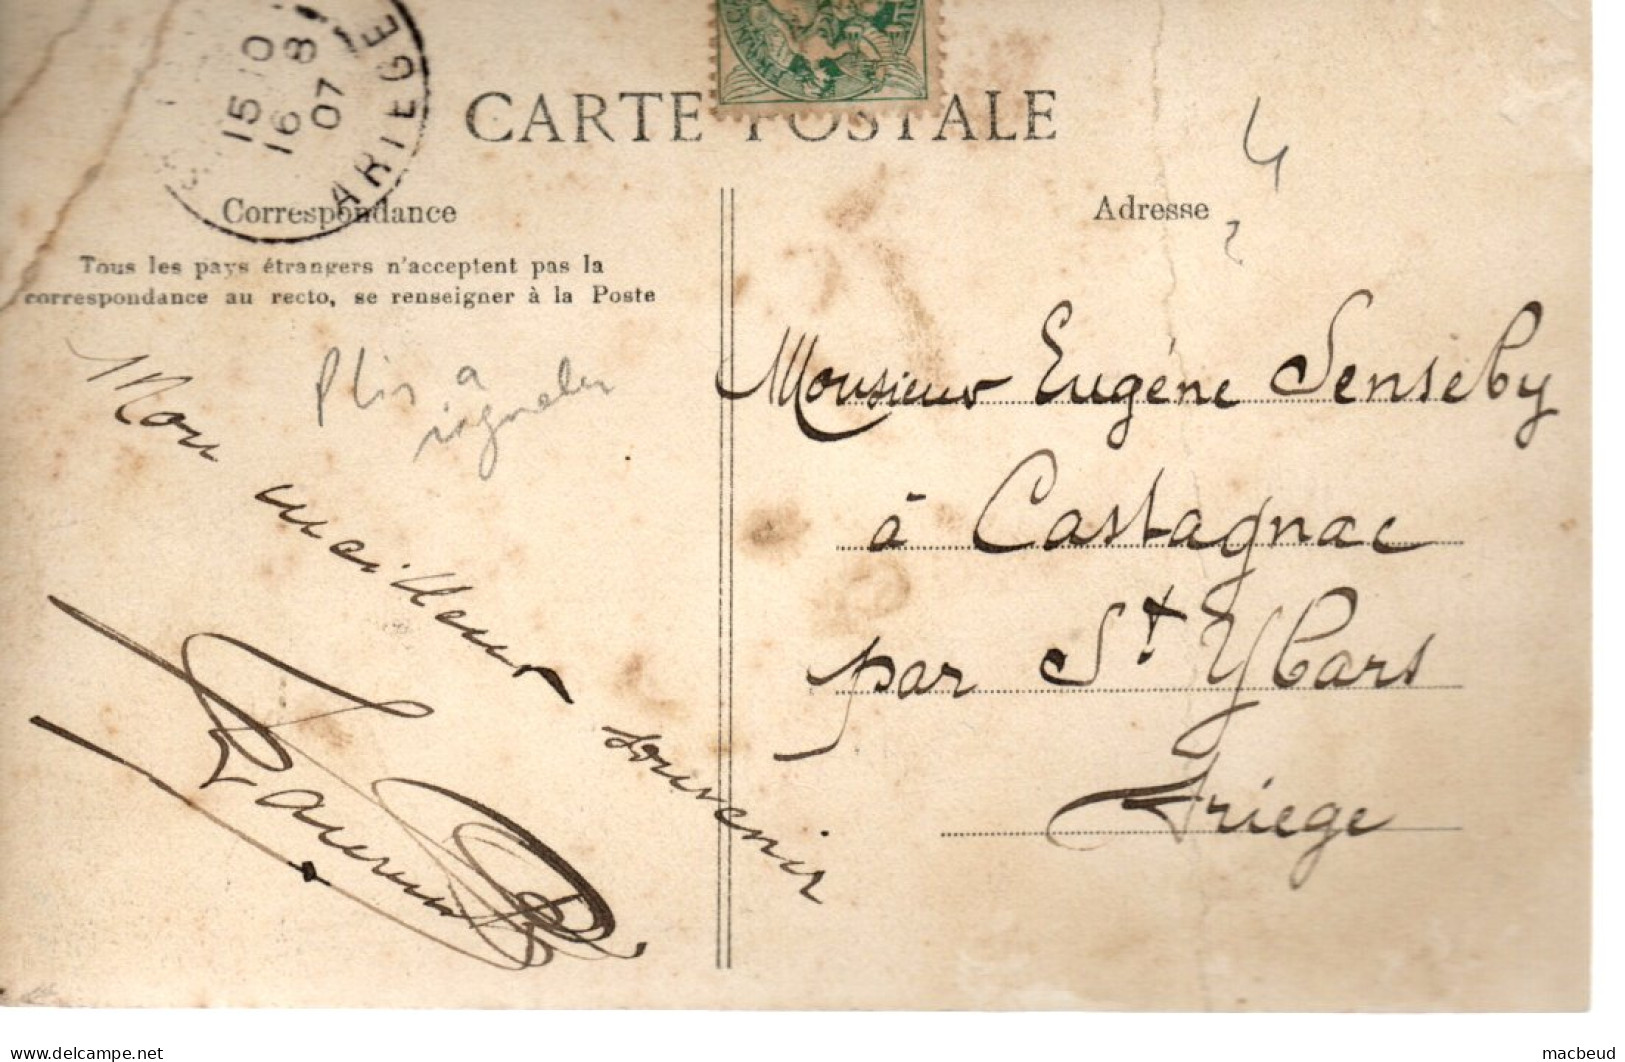 15 10
16 8
07
ARIEGE
CARTE POSTALE
Correspondance
Tous les pays étrangers n'acceptent pas la
correspondance au recto, se renseigner à la Poste
Plis a
signaler
Mon meilleur souvenir
Adresse
Monsieur Eugène Senseby
à Castagnac
par St Ybars
Ariège
macbeud